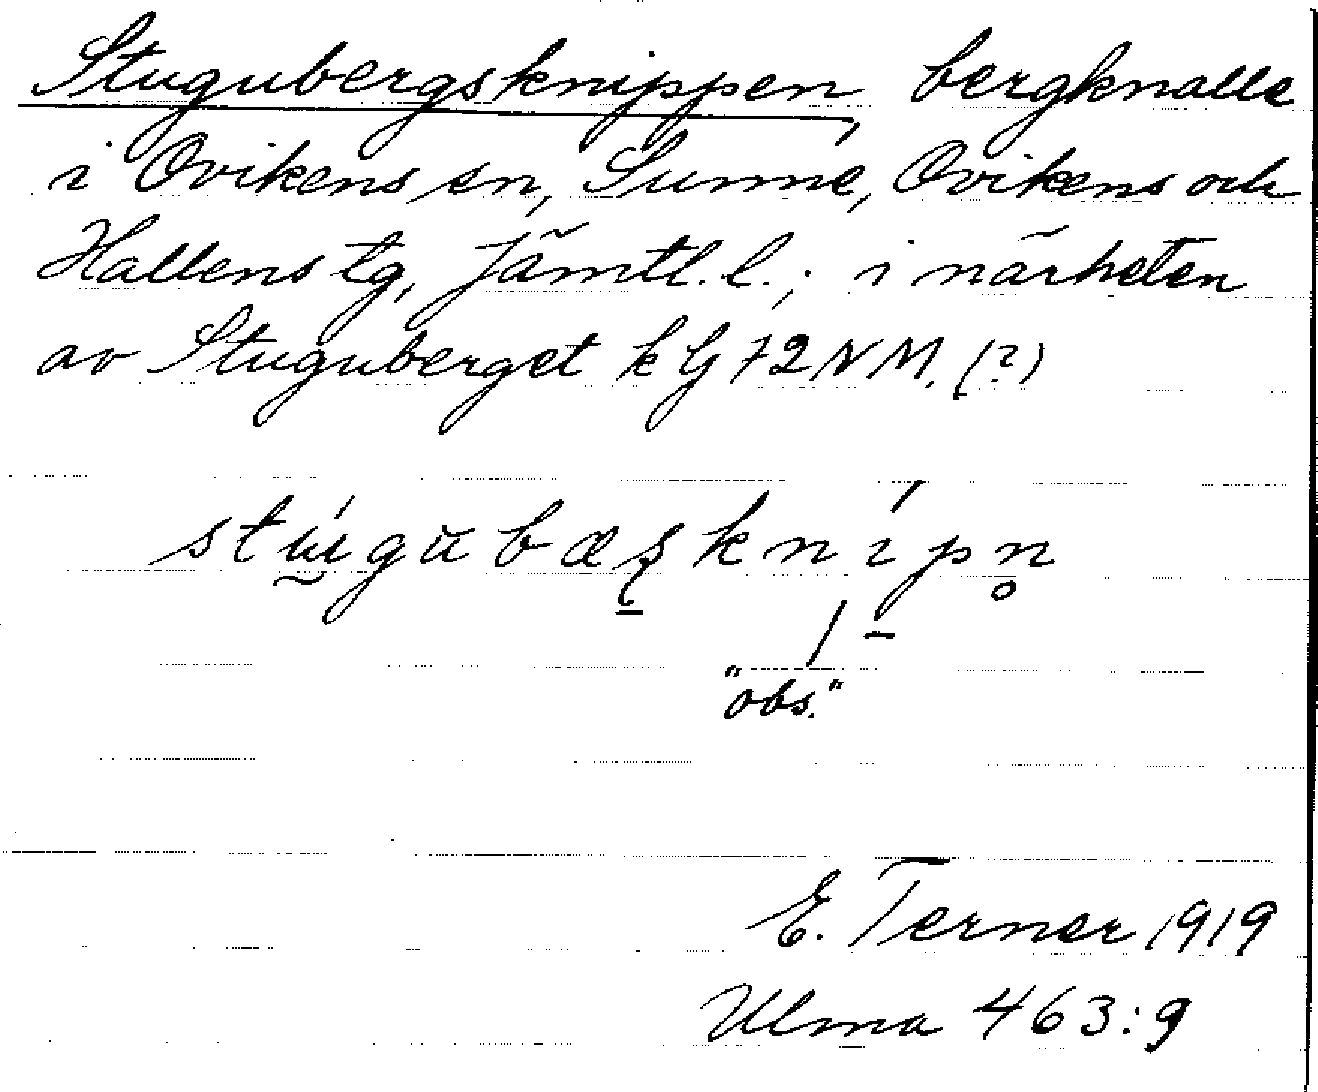 Stugubergsknippen, bergknalle
i Ovikens sn, Sunne, Ovikens och
Hallens tg, Jämtl. l.; i närheten
av Stuguberget k G 72 NM. (?)
stúgubæʂknípn̥
"obs."
E. Terner 1919
Ulma 463:9